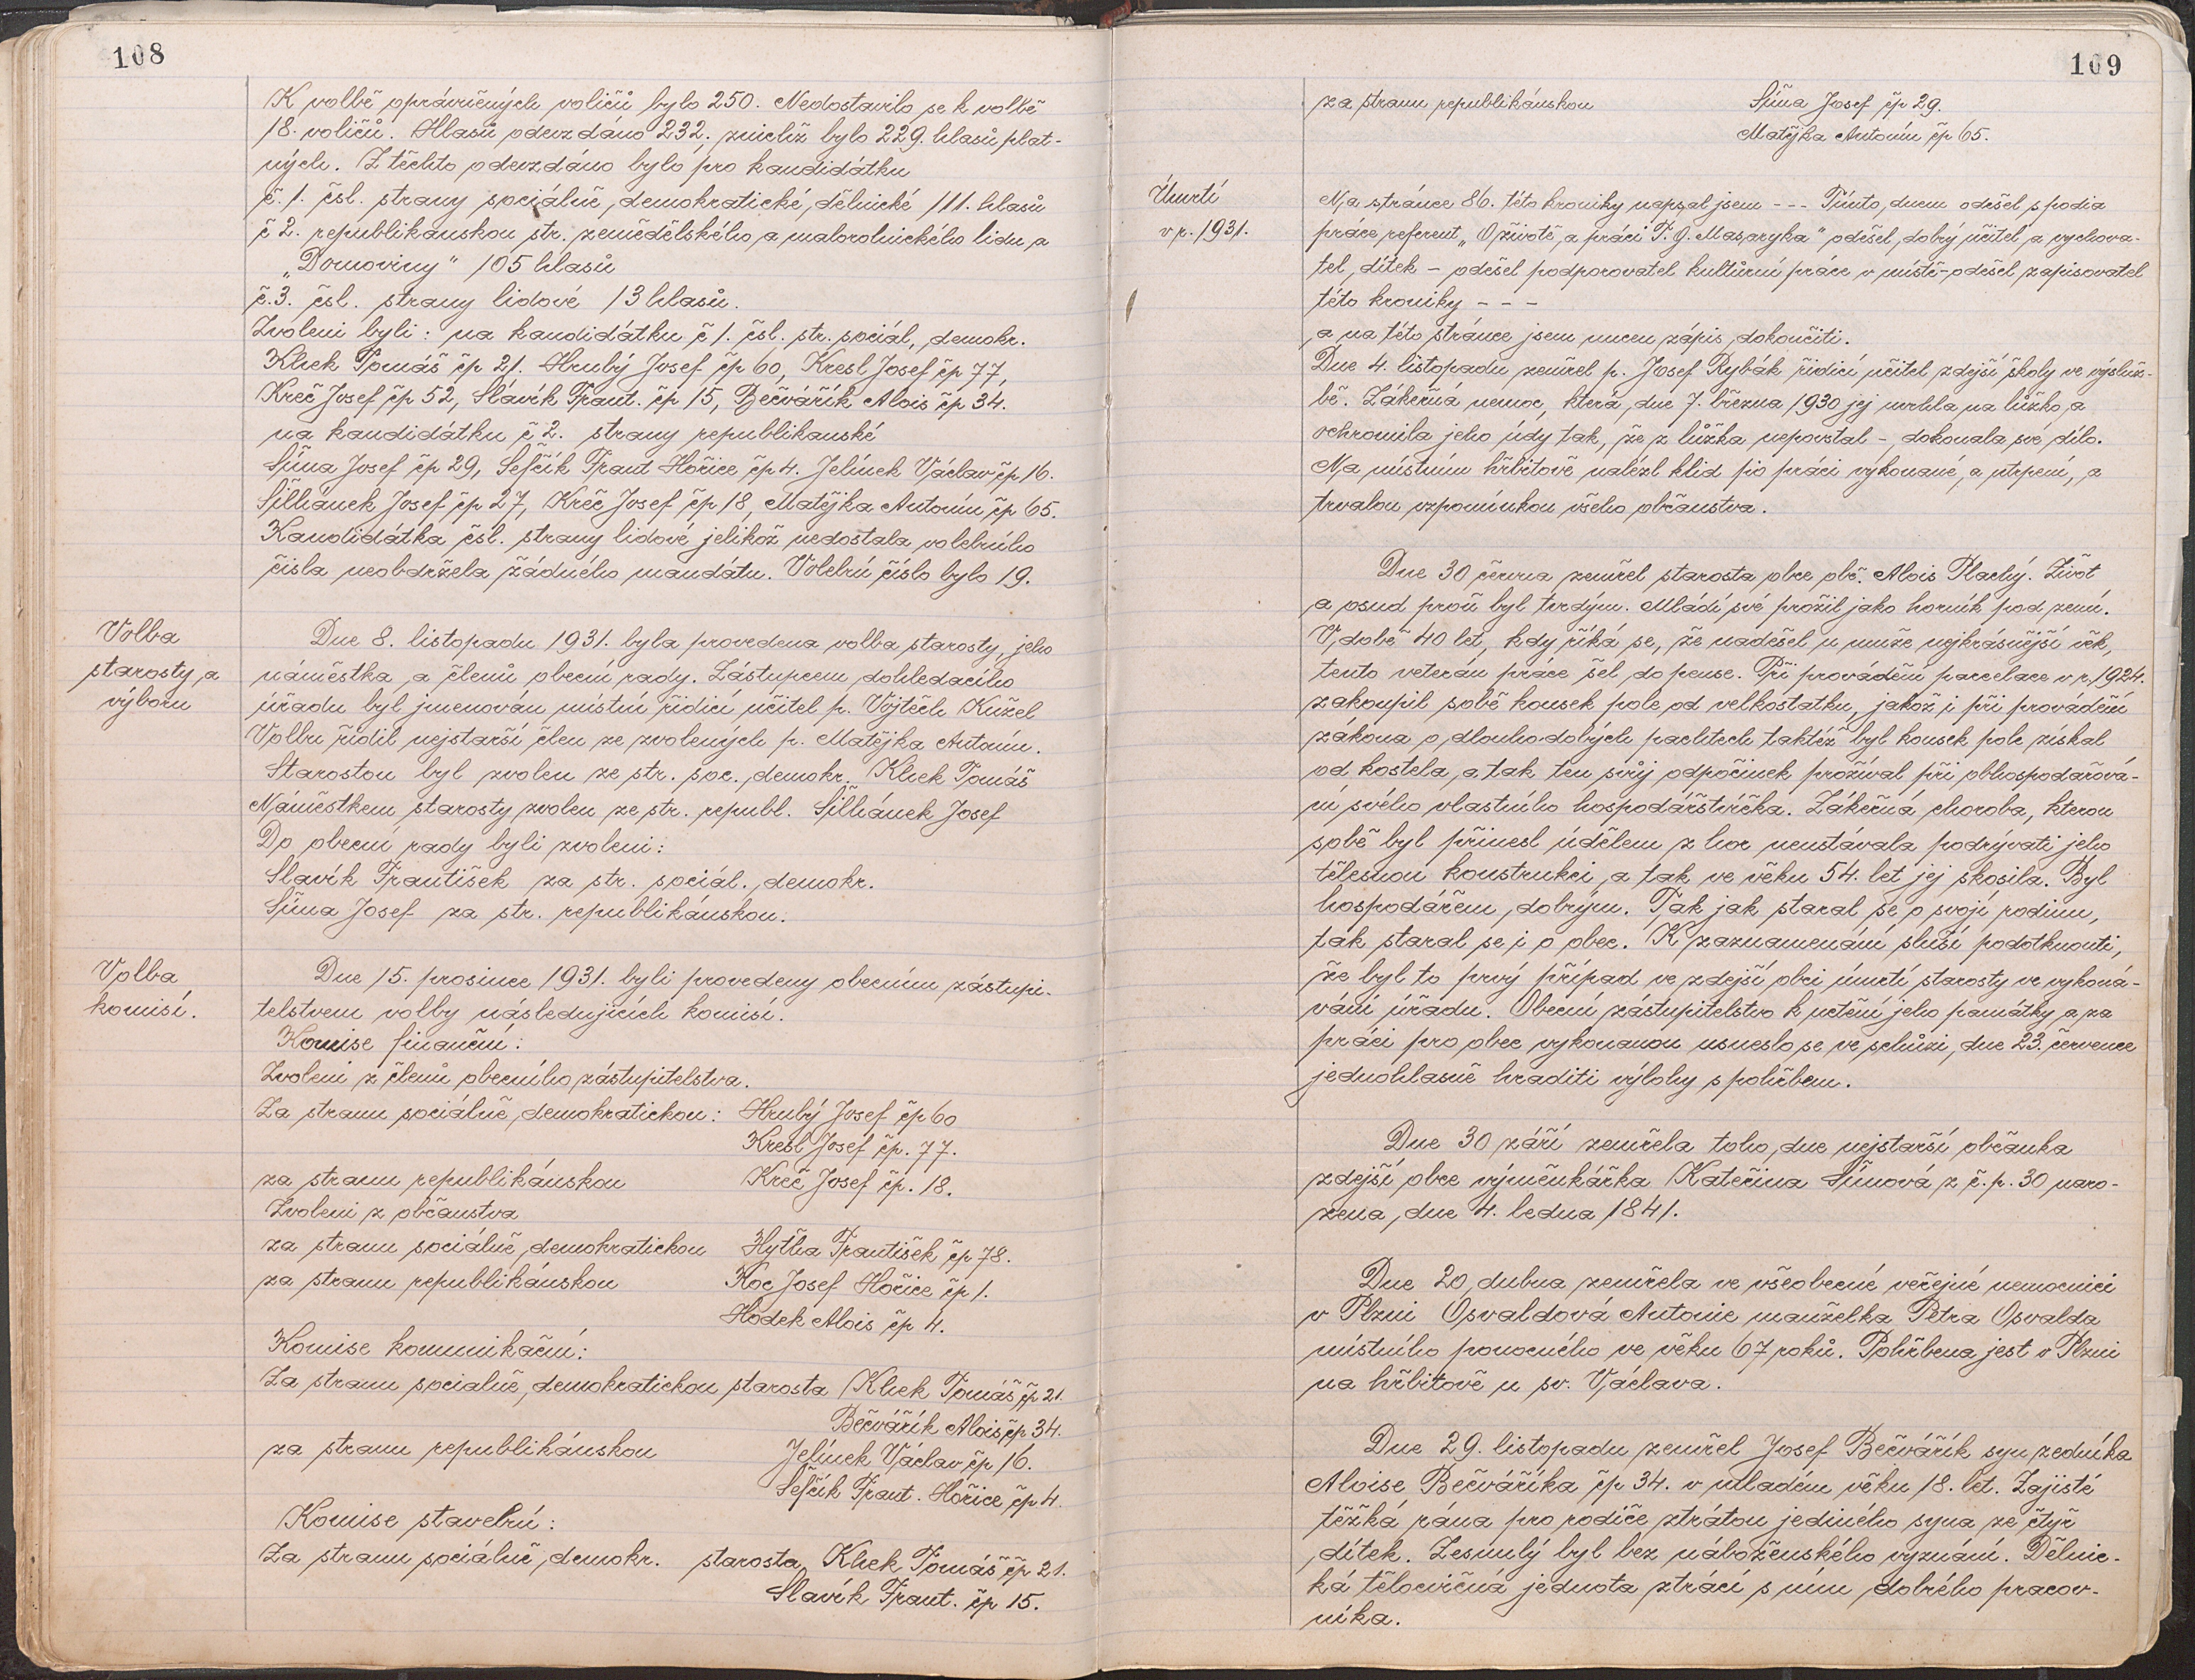 108
K volbě oprávněných voličů bylo 250. Nedostavilo se k volbě
18. voličů. Hlasů odevzdáno 232. znichž bylo 229. hlasů plat-
ných. Z těchto odevzdáno bylo pro kandidátku
č. 1. čsl. strany sociálně demokratické dělnické 111. hlasů
č 2. republikánskou str. zemědělského a malorolnického lidu a
„Domoviny" 105 hlasů
č.3. čsl. strany lidové 13 hlasů.
Zvoleni byli: na kandidátku č 1. čsl. str. sociál, demokr.
Klůk Tomáš čp 21. Hrubý Josef čp 60, Kresl Josef čp 77,
Kreč Josef čp 52, Slávík Frant. čp 15, Bečvářík Alois čp 34.
na kandidátku č 2. strany republikanské
Šůna Josef čp 29, Šefčík Frant Hořice čp 4. Jelínek Václav čp 16.
Šilhánek Josef čp 27, Kreč Josef čp 18, Matějka Antonín čp 65.
Kandidátka čsl. strany lidové jelikož nedostala volebního
čísla neobdržela žádného mandátu. Volební číslo bylo 19.
Volba
starosty a
výboru
Dne 8. listopadu 1931. byla provedena volba starosty, jeho
náměstka a členů obecní rady. Zástupcem dohledacího
úřadu byl jmenován místní řidící učitel p. Vojtěch Kužel
Volbu řídil nejstarší člen ze zvolených p. Matějka Antonín.
Starostou byl zvolen ze str. soc. demokr. Klůk Tomáš
Náměstkem starosty zvolen ze str. republ. Šilhánek Josef
Do obecní rady byli zvoleni:
Slavík František za str. sociál. demokr.
Šůna Josef za str. republikánskou.
Volba
komisí.
Dne 15. prosince 1931. byli provedeny obecním zástupi-
telstvem volby následujících komisí.
Komise finanční:
Zvoleni z členů obecního zástupitelstva.
Za stranu sociálně demokratickou: Hrubý Josef čp 60
Kresl Josef čp. 77.
za stranu republikánskou Kreč Josef čp. 18.
Zvoleni z občanstva
za stranu sociálně demokratickou Hytha František čp 78.
za stranu republikánskou Koc Josef Hořice čp 1.
Hodek Alois čp 4.
Komise komunikační:
Za stranu socialně demokratickou starosta Klůk Tomáš čp 21.
Bečvářík Alois čp 34.
za stranu republikánskou Jelínek Václav čp 16.
Šefčík Frant. Hořice čp 4.
Komise stavební:
Za stranu sociálně demokr. starosta Klůk Tomáš čp 21.
Slavík Frant. čp 15.
109
za stranu republikánskou Šůna Josef čp 29.
Matějka Antonín čp 65.
Úmrtí
v r. 1931.
Na stránce 86. této kroniky napsal jsem --- Tímto dnem odešel s podia
práce referent „O životě a práci T. G. Masaryka" odešel dobrý učitel a vychova-
tel dítek - odešel podporovatel kultůrní práce v místě - odešel zapisovatel
této kroniky - - -
a na této stránce jsem nucen zápis dokončiti.
Dne 4. listopadu zemřel p. Josef Rybák řidící učitel zdejší školy ve výsluž-
bě. Zákeřná nemoc, která dne 7. března 1930 jej uvrhla na lůžko a
ochromila jeho údy tak, že z lůžka nepovstal - dokonala své dílo.
Na místním hřbitově nalézl klid po práci vykonané, a utrpení, a
trvalou vzpomínkou všeho občanstva.
Dne 30 června zemřel starosta obce obč. Alois Plachý. Život
a osud proň byl tvrdým. Mládí své prožil jako horník pod zemí.
V době 40 let, kdy říká se, že nadešel u muže nejkrásnější věk,
tento veterán práce šel do pense. Při provádění parcelace v r. 1924.
zakoupil sobě kousek pole od velkostatku, jakož i při provádění
zákona o dlouhodobých pachtech taktéž byl kousek pole získal
od kostela, a tak ten svůj odpočinek prožíval při obhospodařová-
ní svého vlastního hospodářstvíčka. Zákeřná choroba, kterou
sobě byl přinesl údělem z hor neustávala podrývati jeho
tělesnou konstrukci, a tak ve věku 54. let jej skosila. Byl
hospodářem dobrým. Tak jak staral se o svojí rodinu,
tak staral se i o obec. K zaznamenání sluší podotknouti,
že byl to prvý případ ve zdejší obci úmrtí starosty ve vykoná-
vání úřadu. Obecní zástupitelstvo k uctění jeho památky a za
práci pro obec vykonanou usneslo se ve schůzi dne 23. července
jednohlasně hraditi výlohy s pohřbem.
Dne 30 září zemřela toho dne nejstarší občanka
zdejší obce výměnkářka Kateřina Šůnová z č.p. 30 naro-
zena dne 4. ledna 1841.
Dne 20 dubna zemřela ve všeobecné veřejné nemocnici
v Plzni Osvaldová Antonie manželka Petra Osvalda
místního ponocného ve věku 67 roků. Pohřbena jest v Plzni
na hřbitově u sv. Václava.
Dne 29. listopadu zemřel Josef Bečvářík syn zedníka
Aloise Bečváříka čp 34. v mladém věku 18. let. Zajisté
těžká rána pro rodiče ztrátou jediného syna ze čtyř
dítek. Zesnulý byl bez náboženského vyznání. Dělnic-
ká tělocvičná jednota ztrácí s ním dobrého pracov-
níka.